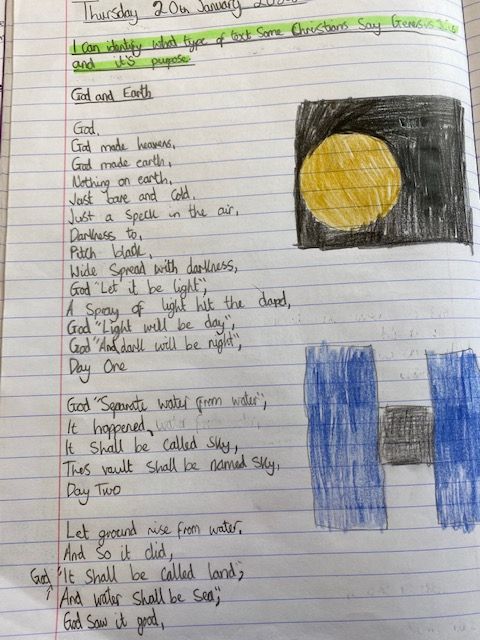 Thursday 20th January
I can identify what type of text Some Christians Say Genesis
and it's purpose.
God and Earth
God,
God made heavens,
God made earth,
Nothing on earth,
Just bare and Cold,
Just a Speck in the air,
Darkness to,
Pitch black,
Wide Spread with darkness,
God "Let it be light",
A Spray of light hit the
God "Light will be day",
God "And dark will be night",
Day One
God "Separate water from water",
It happened,
It Shall be called sky,
Thos vault Shall be named Sky,
Day Two
Let ground rise from water,
And So it did,
God "It Shall be called land",
And water Shall be Sea",
God Saw it good,